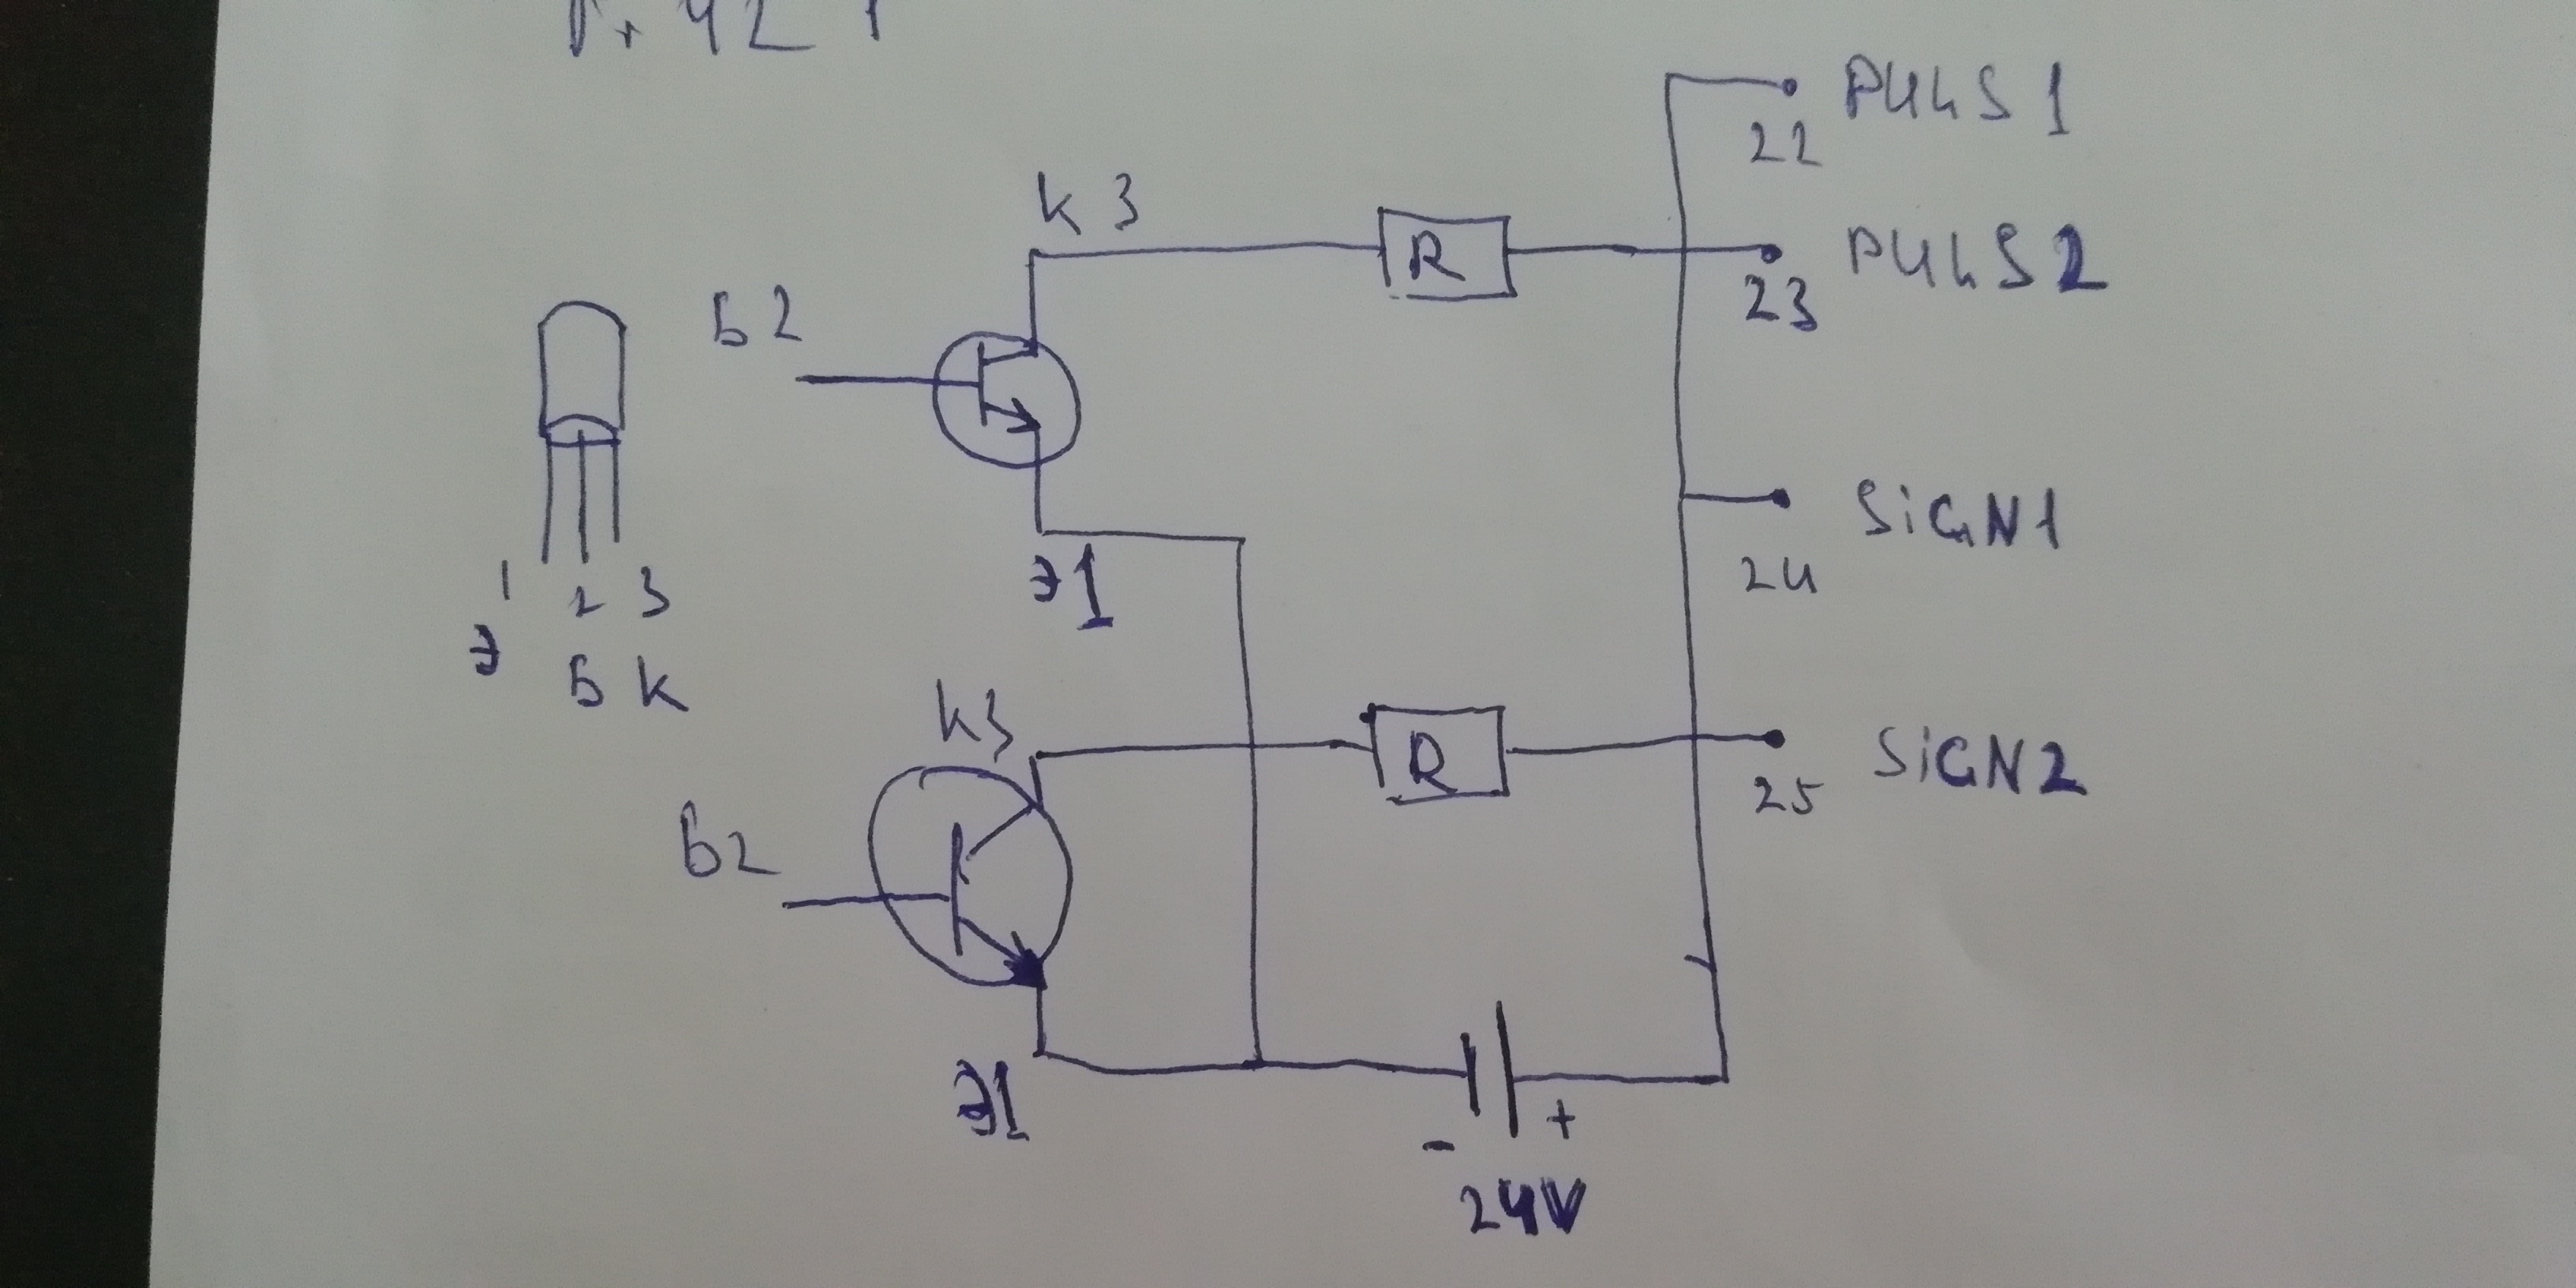 PULS1
22
K 3
R
PULS2
23
Б 2
SiGN1
24
Э1
1 2 3
Э Б K
K3
R
SiGN2
25
Б2
Э1
- +
24V